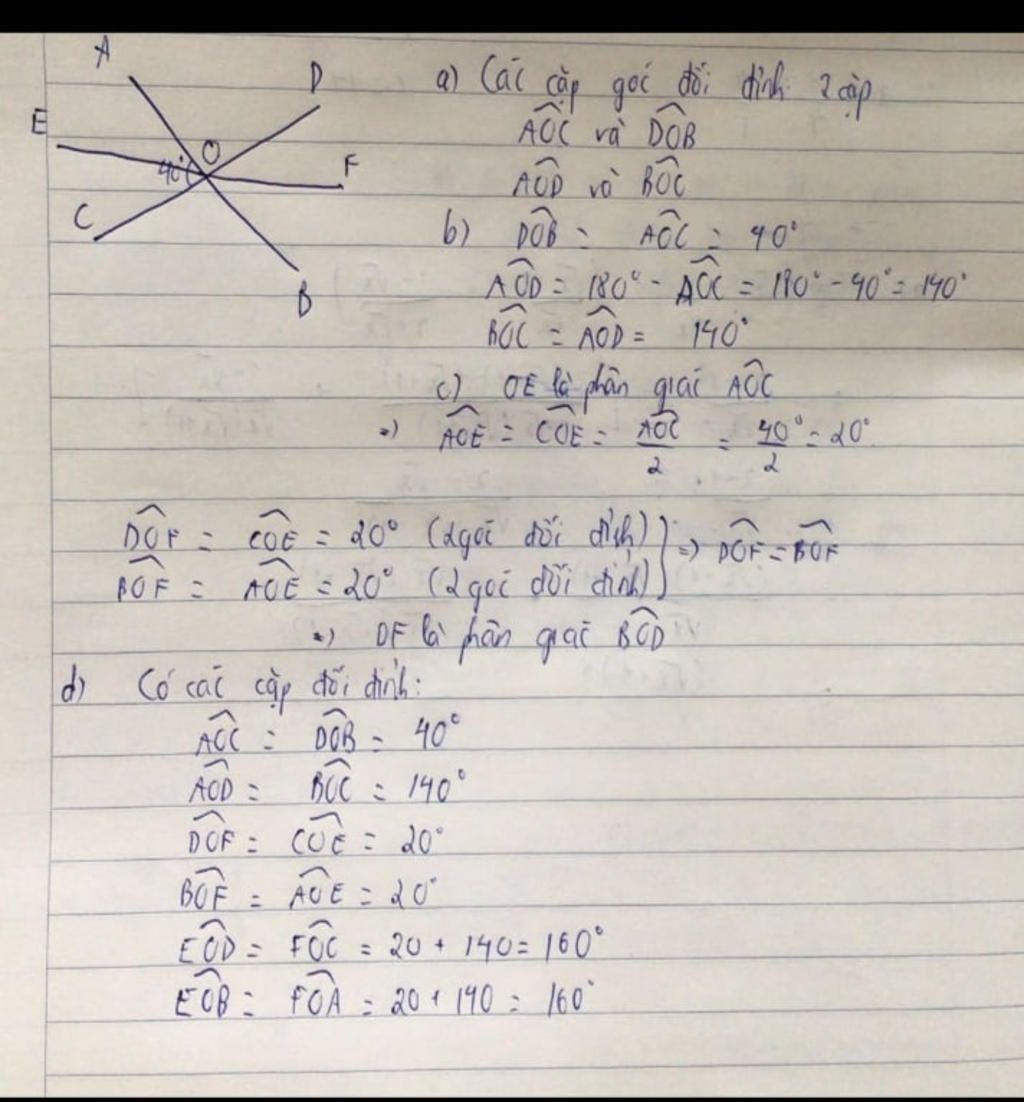 A
D
E
O
40°
F
C
B
a) Các cặp góc đối đỉnh: 2 cặp
AOC và DOB
AOD và BOC
b) DOB = AOC = 40°
AOD = 180° - AOC = 180° - 40° = 140°
BOC = AOD = 140°
c) OE là phân giác AOC
=) AOE = COE = AOC/2 = 40°/2 = 20°
DOF = COE = 20° (2 góc đối đỉnh) } =) DOF = BOF
BOF = AOE = 20° (2 góc đối đỉnh)
=) OF là phân giác BOD
d) Có các cặp đối đỉnh:
AOC = DOB = 40°
AOD = BOC = 140°
DOF = COE = 20°
BOF = AOE = 20°
EOD = FOC = 20 + 140 = 160°
EOB = FOA = 20 + 140 = 160°